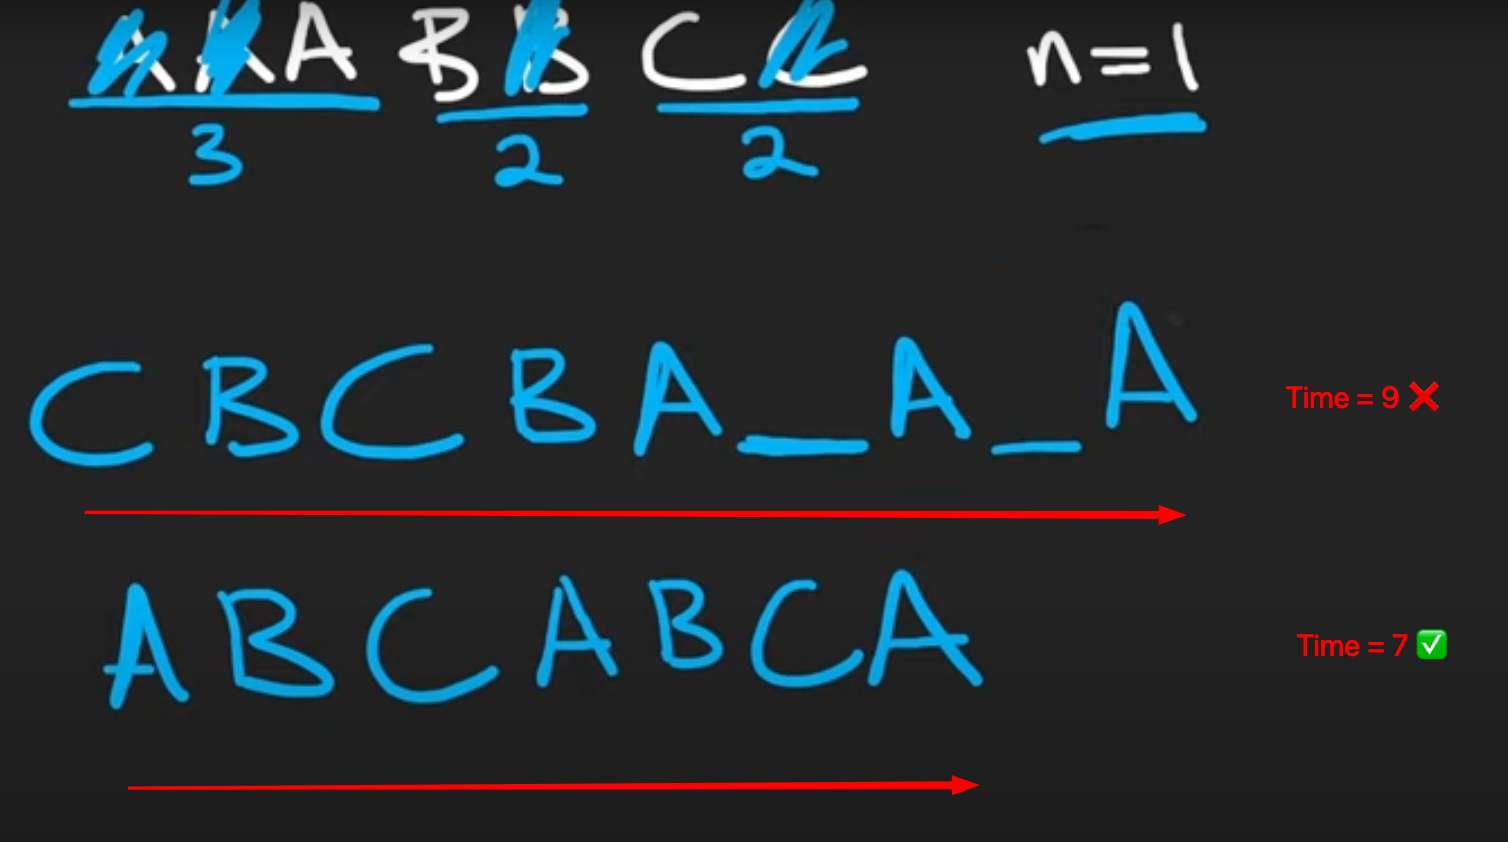 A A A B B C C n=1
3 2 2
C B C B A _ A _ A Time = 9 ❌
A B C A B C A Time = 7 ✅